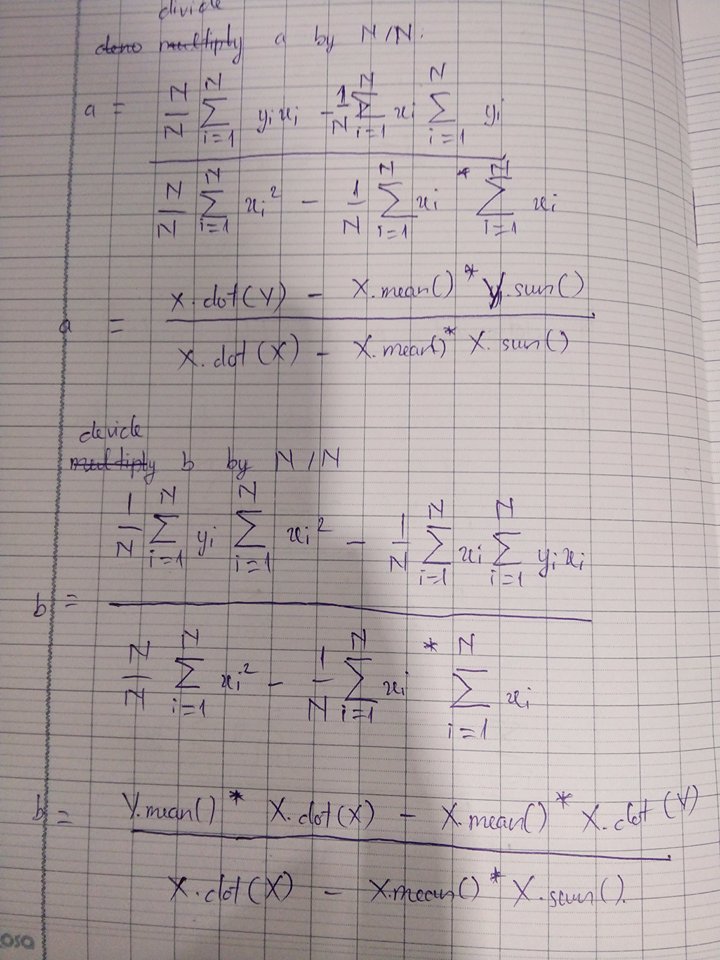 divide
deno multiply a by N/N:
a = N/N ∑_{i=1}^{N} y_i x_i - 1/N ∑_{i=1}^{N} x_i ∑_{i=1}^{N} y_i
N/N ∑_{i=1}^{N} x_i² - 1/N ∑_{i=1}^{N} x_i * ∑_{i=1}^{N} x_i
a = X.dot(Y) - X.mean() * Y.sum()
X.dot(X) - X.mean() * X.sum()
devide
multiply b by N/N
b = 1/N ∑_{i=1}^{N} y_i ∑_{i=1}^{N} x_i² - 1/N ∑_{i=1}^{N} x_i ∑_{i=1}^{N} y_i x_i
N/N ∑_{i=1}^{N} x_i² - 1/N ∑_{i=1}^{N} x_i * ∑_{i=1}^{N} x_i
b = Y.mean() * X.dot(X) - X.mean() * X.dot(Y)
X.dot(X) - X.mean() * X.sum().